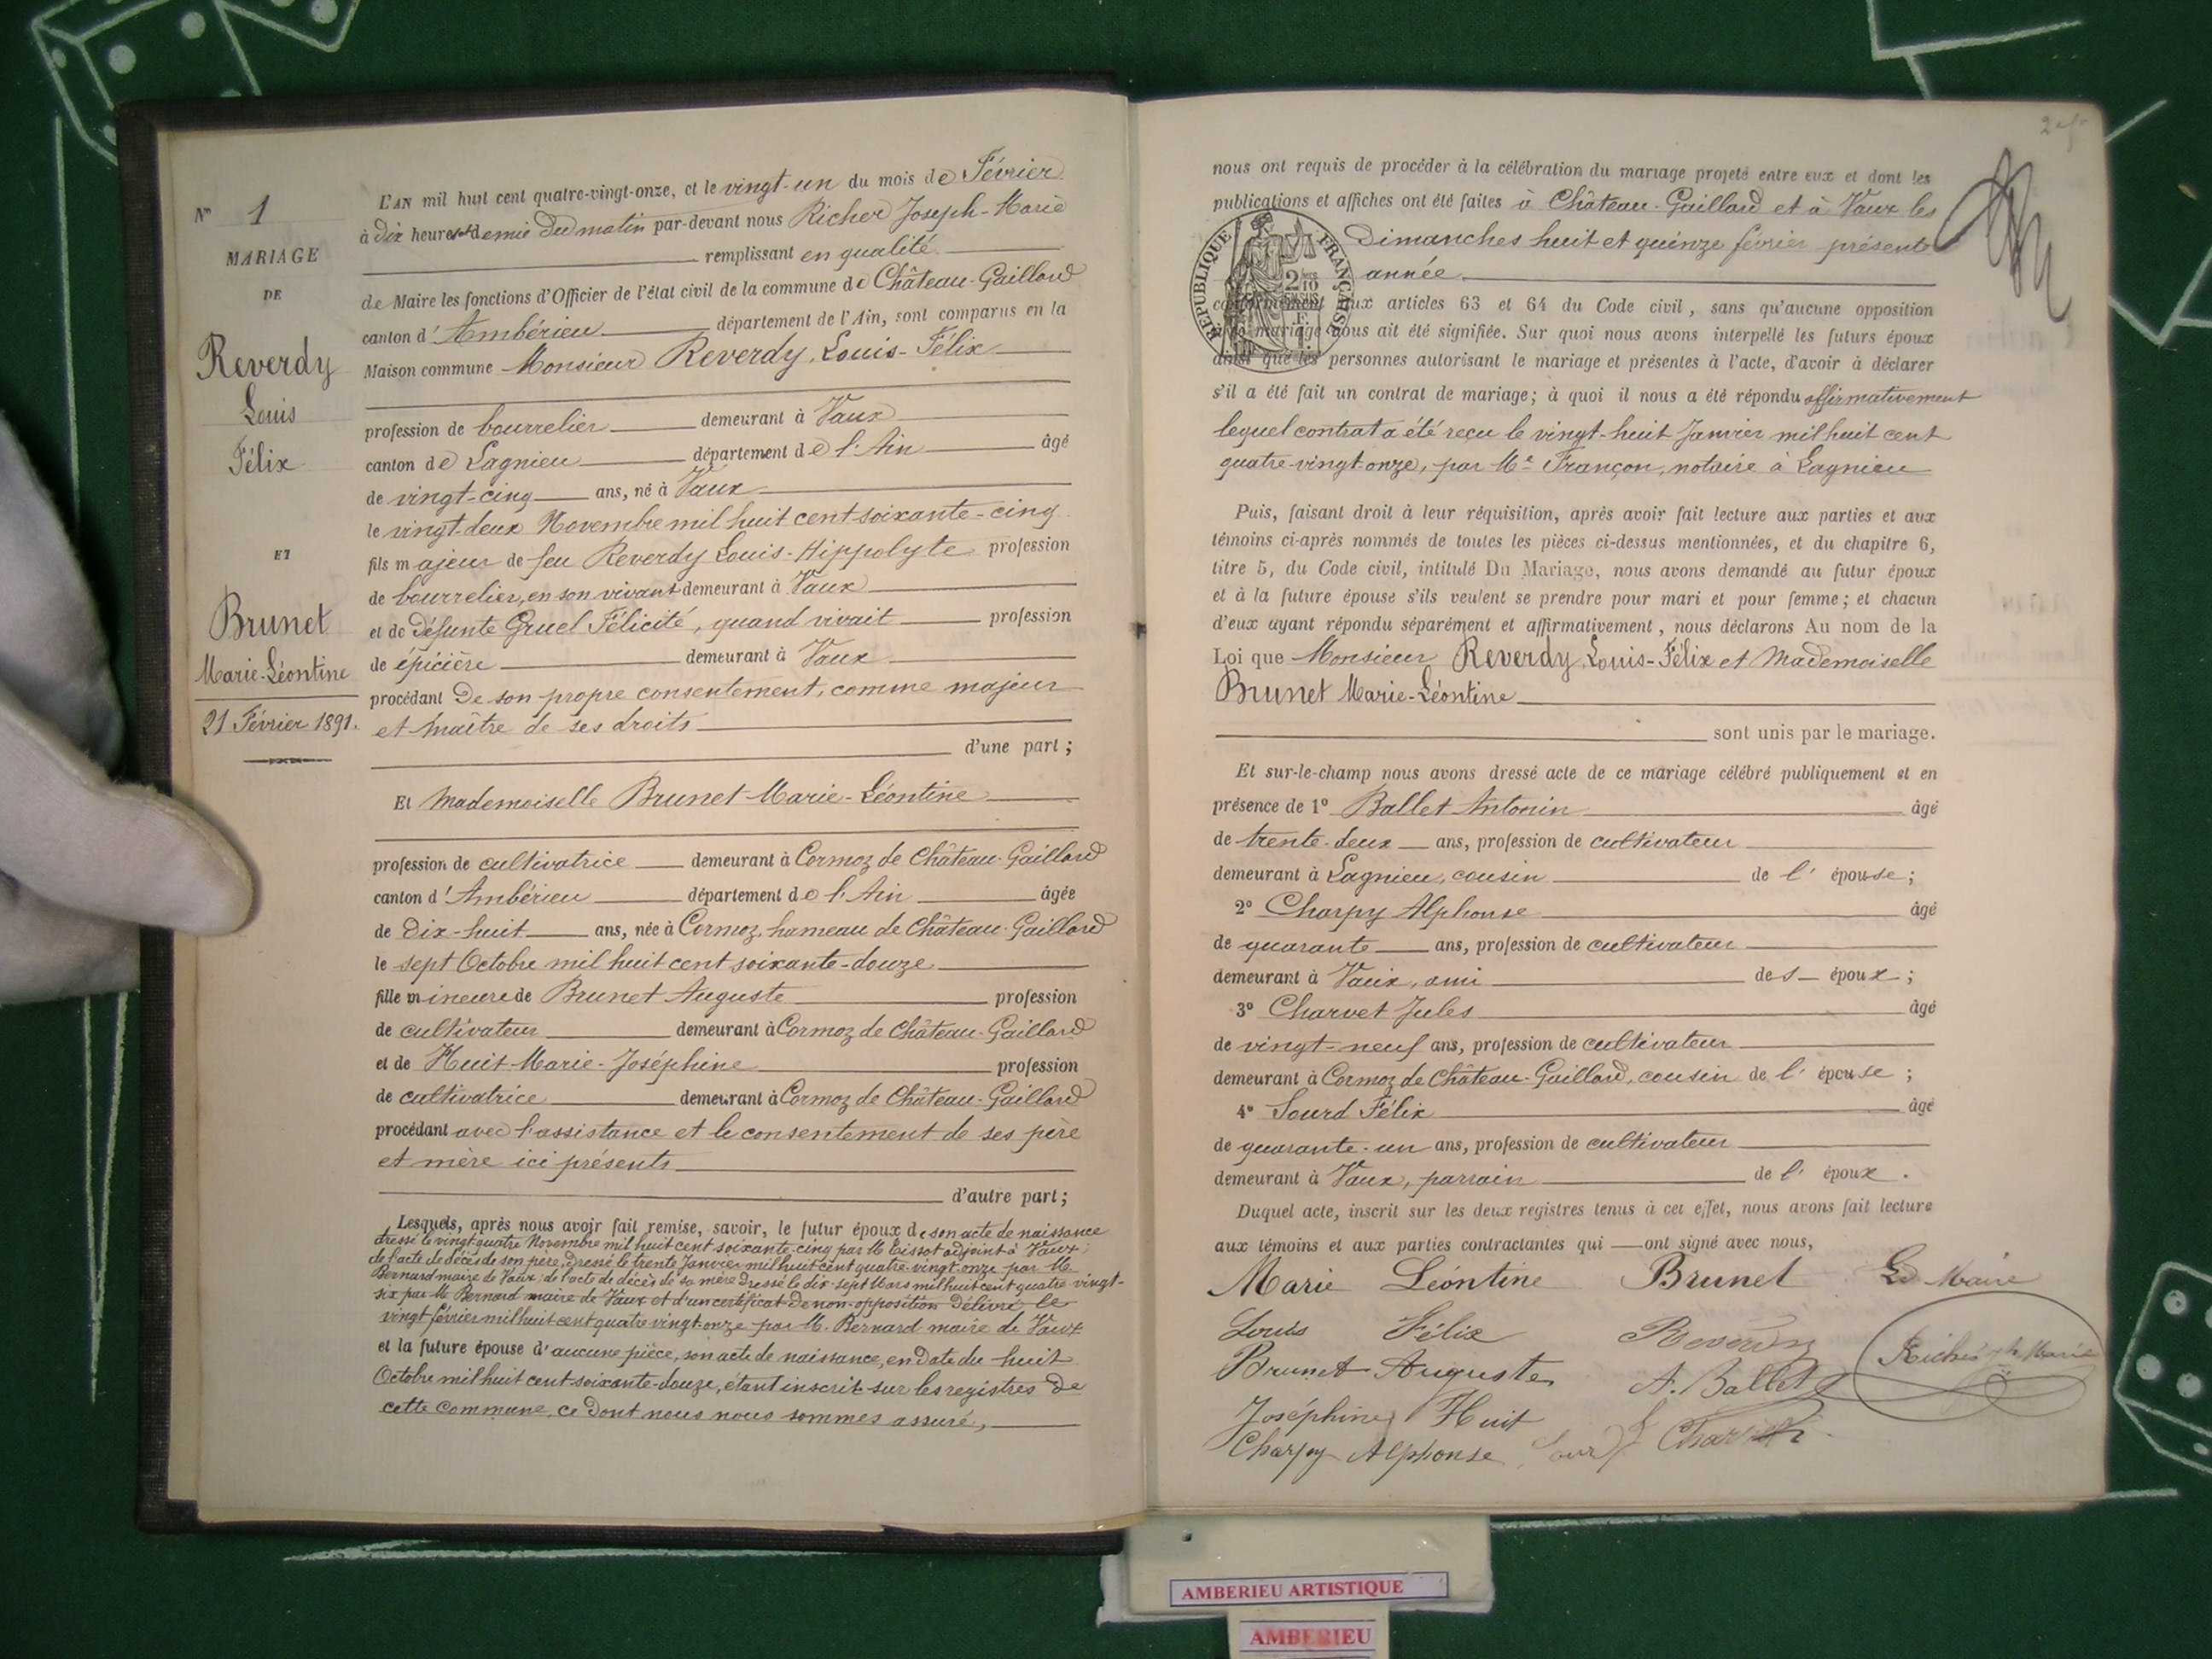 N° 1
MARIAGE
DE
Reverdy
Louis
Félix
ET
Brunet
Marie-Léontine
21 Février 1891.
L'AN mil huit cent quatre-vingt-onze, et le vingt-un du mois de Février
à dix heures et demie du matin par-devant nous Richer Joseph-Marie
remplissant en qualité
de Maire les fonctions d'Officier de l'état civil de la commune de Château-Gaillard
canton d'Ambérieu département de l'Ain, sont comparus en la
Maison commune Monsieur Reverdy, Louis-Félix
profession de bourrelier demeurant à Vaux
canton de Lagnieu département de l'Ain âgé
de vingt-cinq ans, né à Vaux
le vingt-deux Novembre mil huit cent soixante-cinq
fils majeur de feu Reverdy Louis-Hippolyte profession
de bourrelier, en son vivant demeurant à Vaux
et de défunte Gruel Félicité, quand vivait profession
de épicière demeurant à Vaux
procédant de son propre consentement, comme majeur
et maître de ses droits
d'une part;
Et Mademoiselle Brunet Marie-Léontine
profession de cultivatrice demeurant à Cormoz de Château-Gaillard
canton d'Ambérieu département de l'Ain âgée
de dix-huit ans, née à Cormoz, hameau de Château-Gaillard
le sept Octobre mil huit cent soixante-douze
fille mineure de Brunet Auguste profession
de cultivateur demeurant à Cormoz de Château-Gaillard
et de Huit Marie-Joséphine profession
de cultivatrice demeurant à Cormoz de Château-Gaillard
procédant avec l'assistance et le consentement de ses père
et mère ici présents
d'autre part;
Lesquels, après nous avoir fait remise, savoir, le futur époux de son acte de naissance
dressé le vingt-quatre Novembre mil huit cent soixante-cinq par M. adjoint à Vaux;
de l'acte de décès de son père, dressé le trente Janvier mil huit cent quatre-vingt-onze par M.
Bernard maire de Vaux; de l'acte de décès de sa mère dressé le dix-sept Mars mil huit cent quatre-vingt-
six par M. Bernard maire de Vaux et d'un certificat de non-opposition délivré le
vingt février mil huit cent quatre vingt-onze par M. Bernard maire de Vaux
et la future épouse d'aucune pièce, son acte de naissance, en date du huit
Octobre mil huit cent soixante-douze, étant inscrit sur les registres de
cette commune, ce dont nous nous sommes assuré,
nous ont requis de procéder à la célébration du mariage projeté entre eux et dont les
publications et affiches ont été faites à Château-Gaillard et à Vaux les
dimanches huit et quinze février présente
année
REPUBLIQUE FRANÇAISE
conformément aux articles 63 et 64 du Code civil, sans qu'aucune opposition
à ce mariage nous ait été signifiée. Sur quoi nous avons interpellé les futurs époux
ainsi que les personnes autorisant le mariage et présentes à l'acte, d'avoir à déclarer
s'il a été fait un contrat de mariage; à quoi il nous a été répondu affirmativement
lequel contrat a été reçu le vingt-huit Janvier mil huit cent
quatre-vingt-onze, par Me Françon, notaire à Lagnieu
Puis, faisant droit à leur réquisition, après avoir fait lecture aux parties et aux
témoins ci-après nommés de toutes les pièces ci-dessus mentionnées, et du chapitre 6,
titre 5, du Code civil, intitulé Du Mariage, nous avons demandé au futur époux
et à la future épouse s'ils veulent se prendre pour mari et pour femme; et chacun
d'eux ayant répondu séparément et affirmativement, nous déclarons Au nom de la
Loi que Monsieur Reverdy, Louis-Félix et Mademoiselle
Brunet Marie-Léontine
sont unis par le mariage.
Et sur-le-champ nous avons dressé acte de ce mariage célébré publiquement et en
présence de 1° Ballet Antonin âgé
de trente-deux ans, profession de cultivateur
demeurant à Lagnieu, cousin de l'épouse;
2° Charpy Alphonse âgé
de quarante ans, profession de cultivateur
demeurant à Vaux, ami des époux;
3° Charvet Jules âgé
de vingt-neuf ans, profession de cultivateur
demeurant à Cormoz de Château-Gaillard, cousin de l'épouse;
4° Sourd Félix âgé
de quarante-un ans, profession de cultivateur
demeurant à Vaux, parrain de l'époux.
Duquel acte, inscrit sur les deux registres tenus à cet effet, nous avons fait lecture
aux témoins et aux parties contractantes qui ont signé avec nous,
Marie Léontine Brunet Le Maire
Louis Félix Reverdy
Brunet Auguste A. Ballet
Joséphine Huit
Charpy Alphonse
AMBERIEU ARTISTIQUE
AMBERIEU